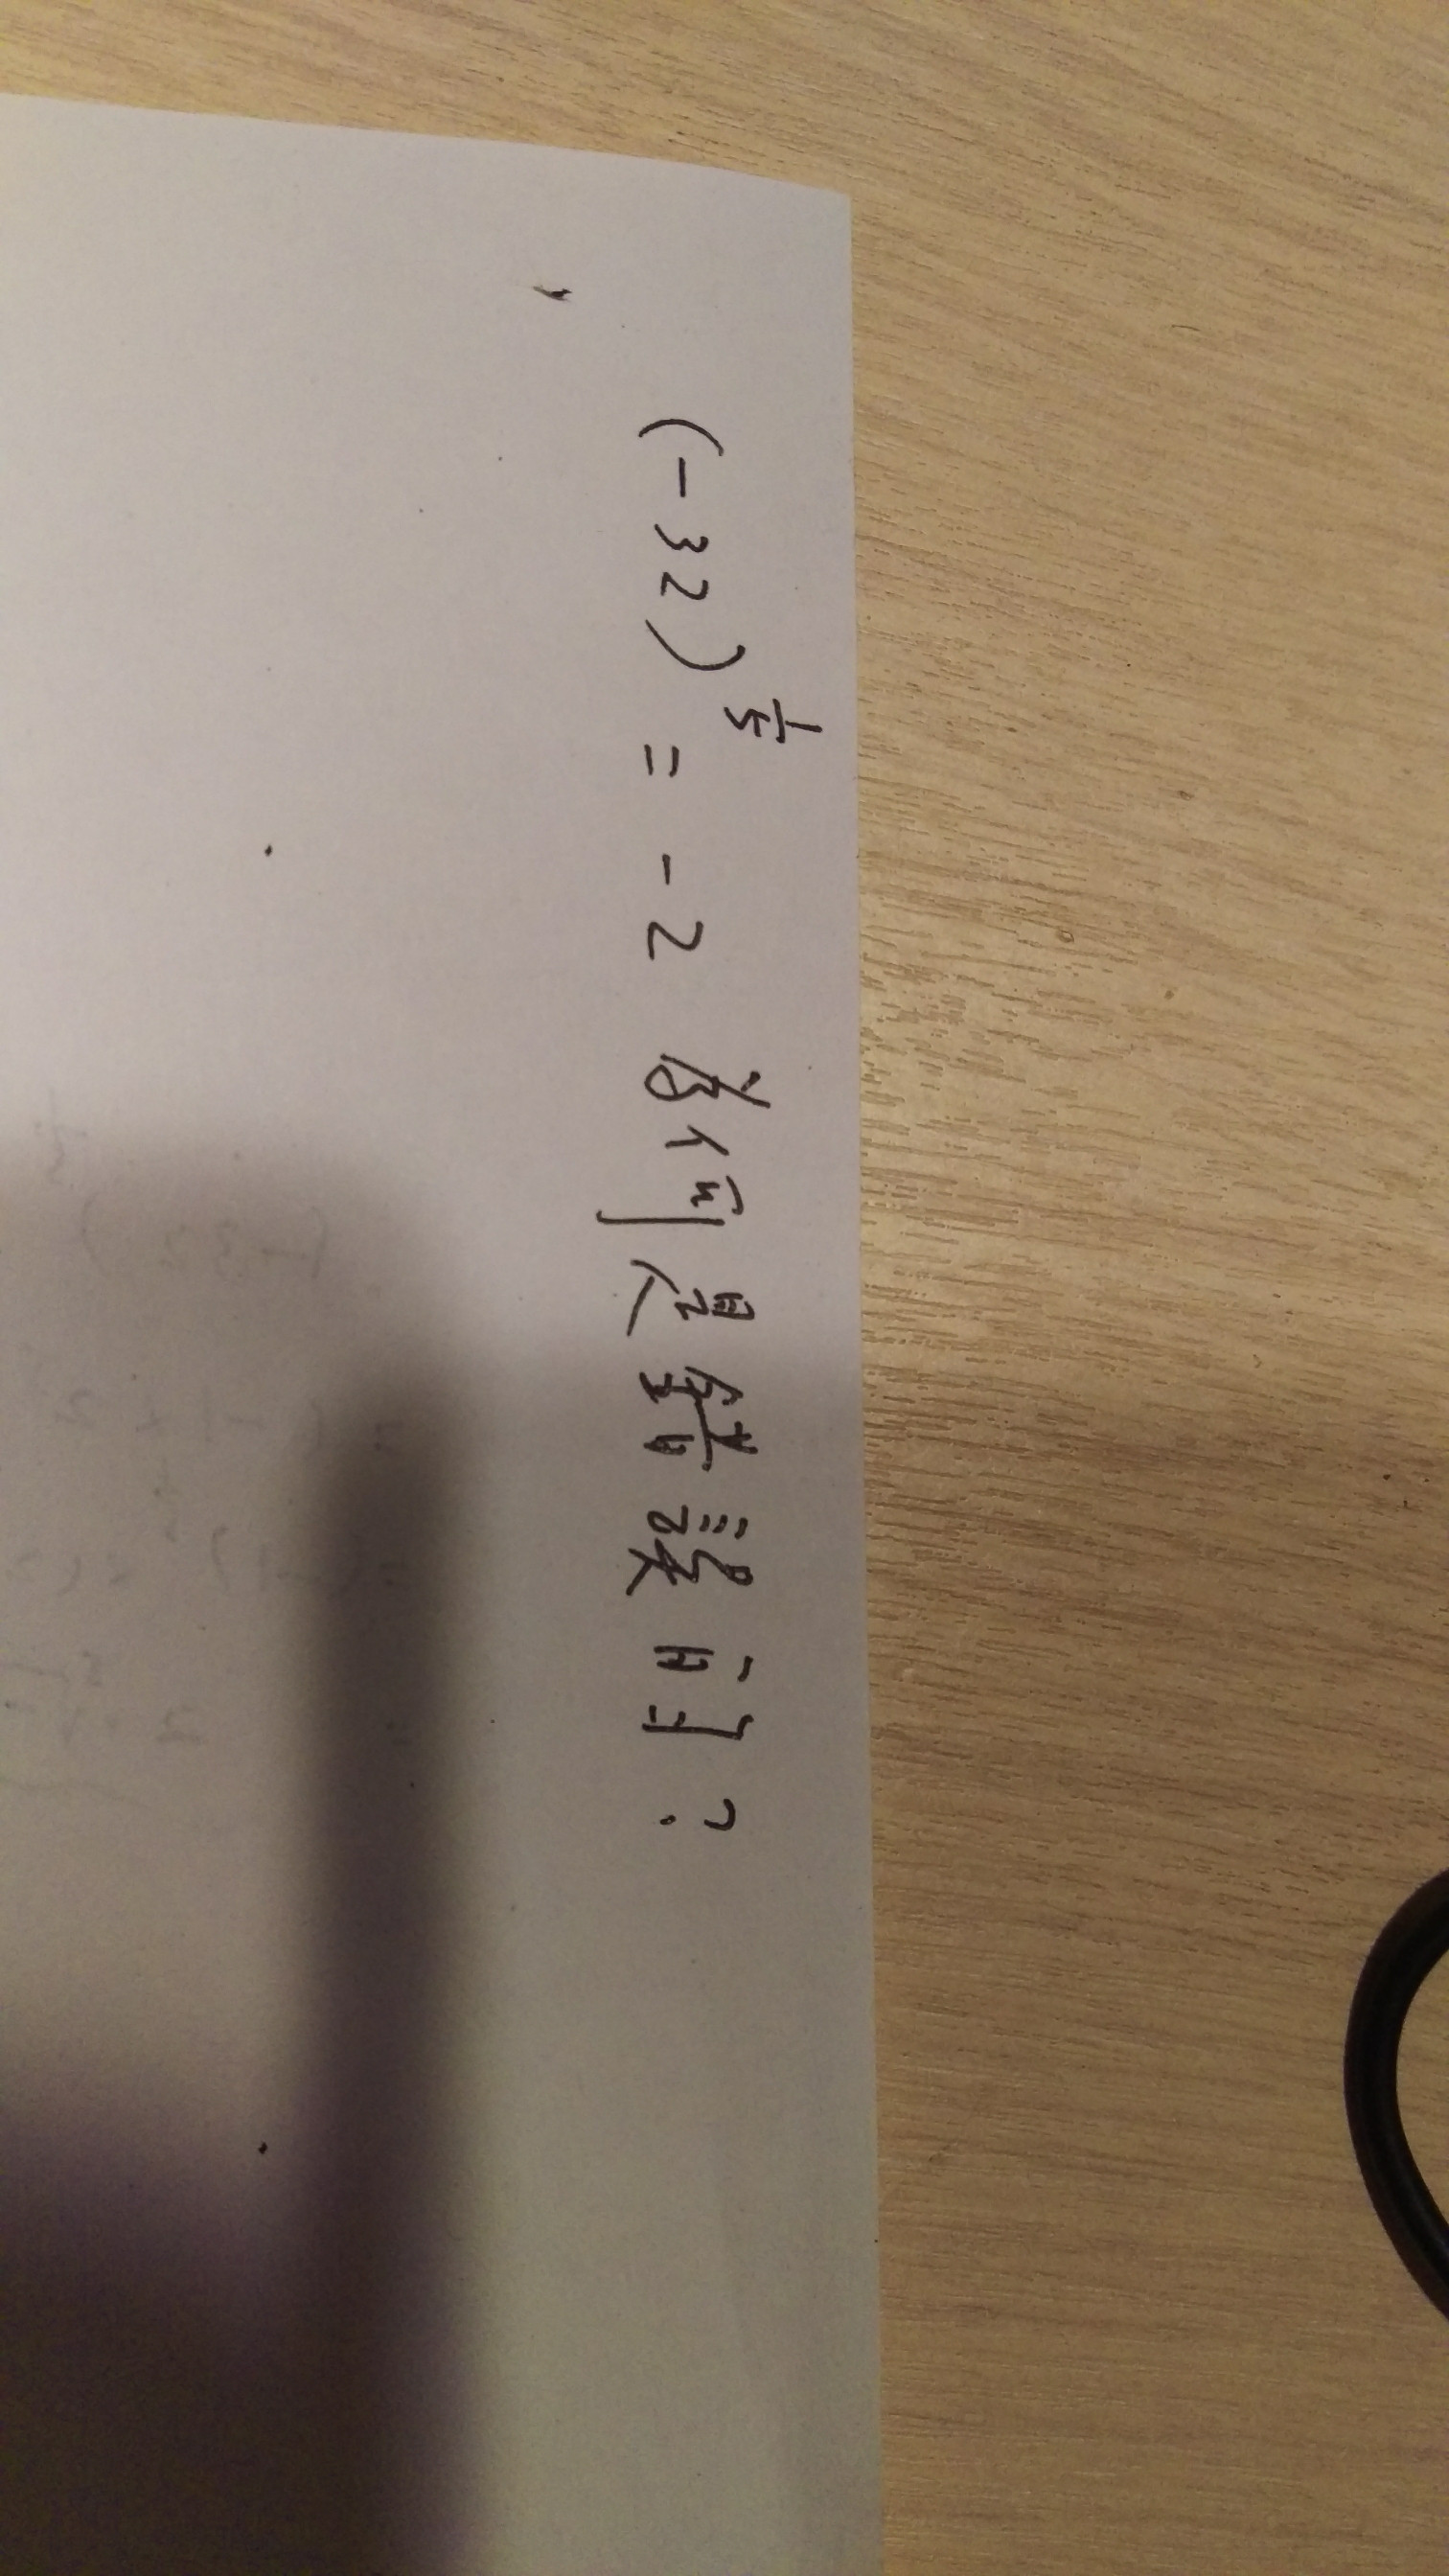 (-32)^{1/5} = -2 為何是錯誤的?